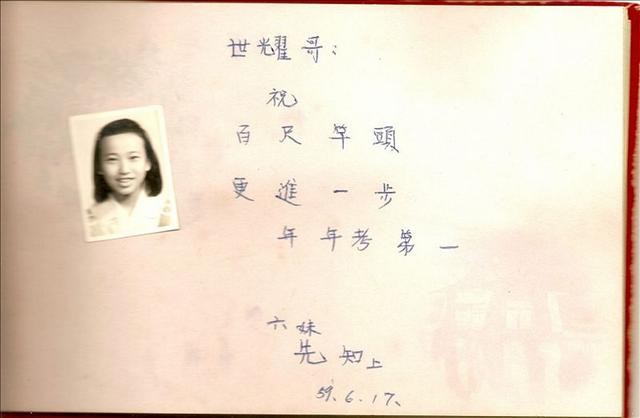 世光耀哥：
祝
百尺竿頭
更進一步
年年考第一
六妹
先知上
59.6.17.